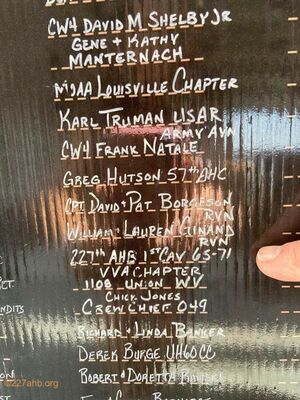 CW4 DAVID M SHELBY JR
GENE + KATHY
MANTERNACH
MOAA LOUISVILLE CHAPTER
KARL TRUMAN USAR
ARMY AVN
CW4 FRANK NATALE
GREG HUTSON 57TH AHC
CPT DAVID + PAT BORGESON
RVN
WILLIAM + LAUREN GINAND
RVN
227TH AHB 1ST CAV 65-71
VVA CHAPTER
1108 UNION WV
CHICK JONES
CREWCHIEF 049
RICHARD + LINDA BANKER
DEREK BURGE UH60CC
ROBERT + DORETTA
©227ahb.org